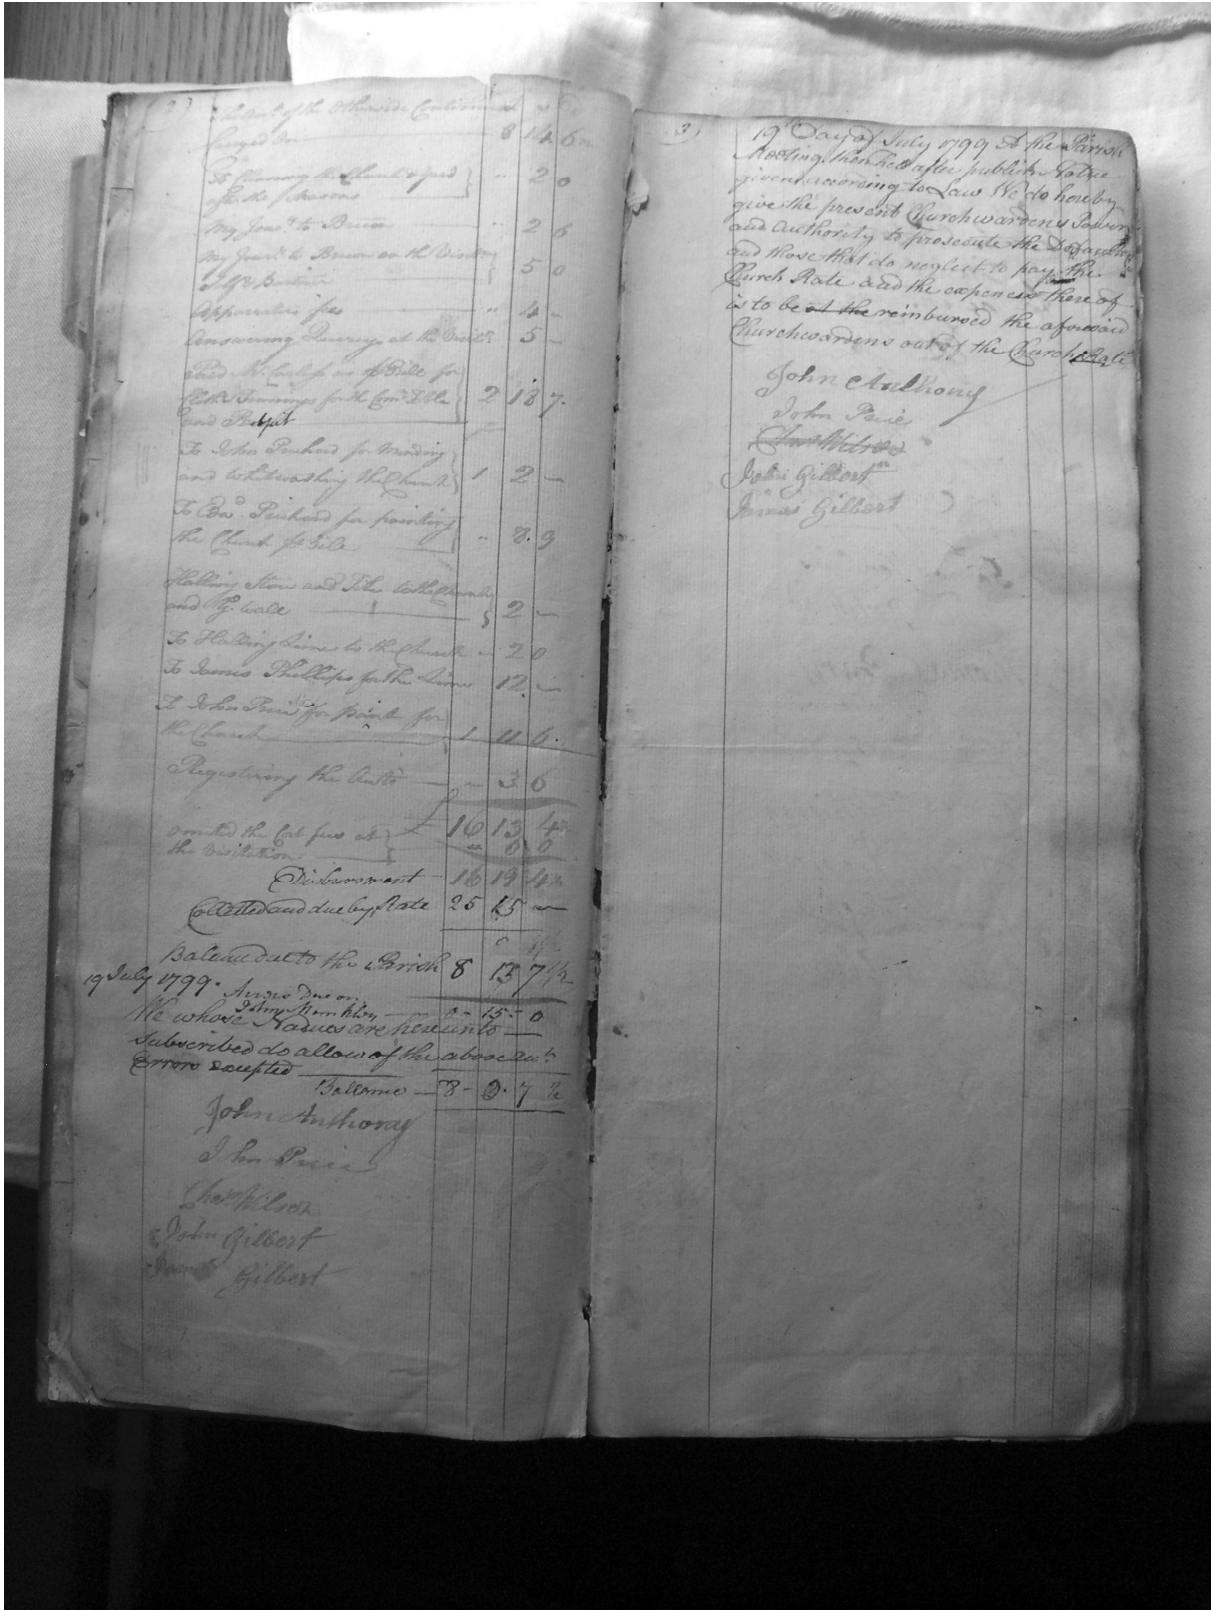 2)
of the Otherside Continued
8 14 6
To Cleaning the Church & yard
after the Masons " 2 0
My Jour.y to Brecon " 2 6
My Jour.y to Brecon on the
5 0
Apparitors fees " 4 —
Answering Querrys at the Visit.n 5 —
Paid Mr. as Bill for
Trimings for the Com.n Table 2 18 7.
and Pulpit
To John Prichard for mending
and whitewashing the Church 1 2 —
To Prichard for painting
the Church " 8. 9
Halling Stone and Tiles to the Church
and wall 2 —
To Halling Lime to the Church " 2 0
To James Phillips for the Lime 12 —
To John Price for paint for
the Church 1 11 6.
Registering the — 3 6
16 13 4
omitted the Cort fees at
the Visitation " 6 0
Disbursment 16 19 4
Collected and due by Rate 25 15 —
Balance due to the Parish 8 15 7 1/2
19 July 1799.
Due on
John — 0 - 15 - 0
We whose Names are hereunto
Subscribed do allow of the above
Errors excepted
Ballance — 8 - 0 - 7 1/2
John Anthony
John Price
Cha.s Wilson
John Gilbert
James Gilbert
3)
19th Day of July 1799 At the Parish
Meeting then held after publick Notice
given according to Law We do hereby
give the present Churchwardens Power
and Authority to prosecute the
and those that do neglect to pay the
Church Rate and the expences there of
is to be at the reinbursed the aforesaid
Churchwardens out of the Church Rate
John Anthony
John Price
Cha.s Wilson
John Gilbert
James Gilbert